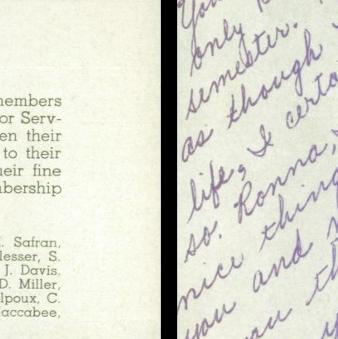 members
or Serv-
en their
to their
heir fine
bership
. Safran,
lesser, S.
J. Davis,
D. Miller,
lpoux, C.
accabee,
You
only
semester.
as though
life, I certa
so. Ronna,
nice thing
you and
you th